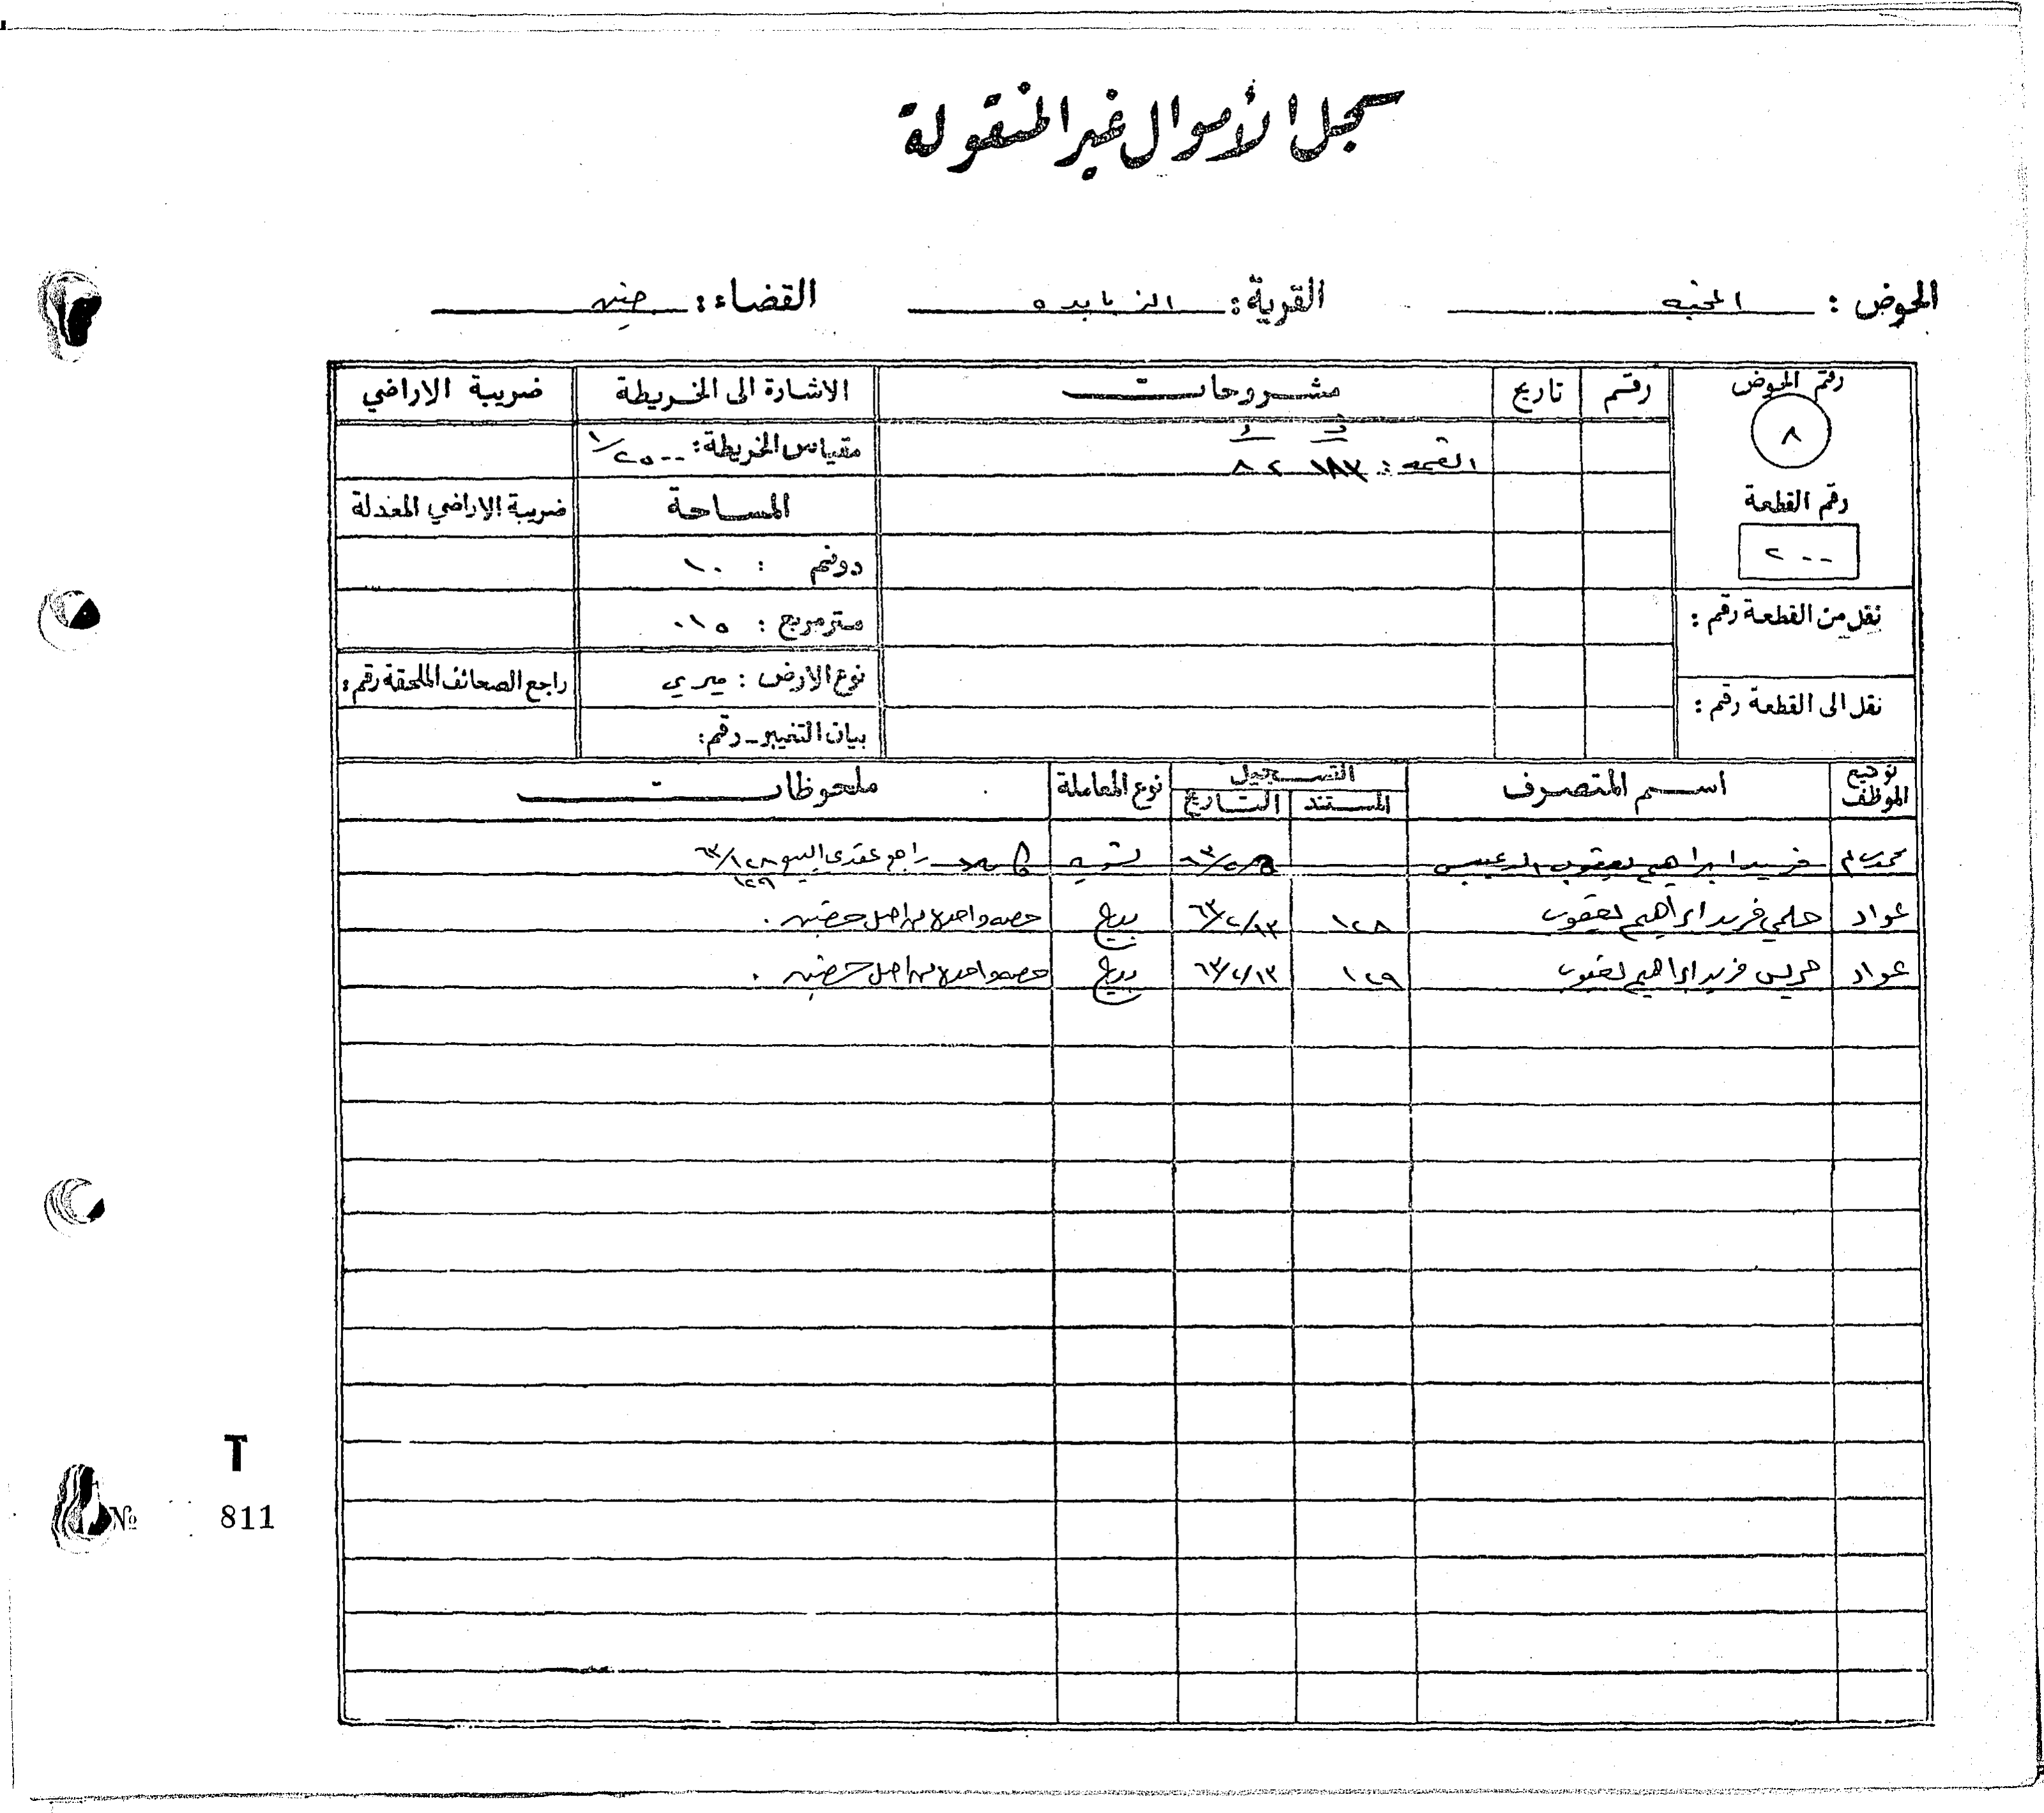 سجل الأموال غير المنقولة
الحوض : المجنه القرية : الزبابده القضاء : جنين
رقم الحوض رقم تاريخ مشروحات الاشارة الى الخريطة ضريبة الاراضي
٨
القيمة : ١٨٣ ٨٢٠ مقياس الخريطة : ١/٢٥٠٠
رقم القطعة المساحة ضريبة الاراضي المعدلة
٢٠٠
دونم : ١٠
نقل من القطعة رقم : متر مربع : ٠١٥
نوع الارض : ميري راجع الصحائف الملحقة رقم :
نقل الى القطعة رقم :
بيان التغيير - رقم :
توقيع الموظف اسم المتصرف التسجيل نوع المعاملة ملحوظات
المستند التاريخ
فريد ابراهيم يعقوب تسويه راجع عقدي البيع ١٢٨/٦٣
١٢٩
عواد حلمي فريد ابراهيم يعقوب ١٢٨ ٦٣/٢/١٣ بيع حصه واحده من اصل حصتين .
عواد جريس فريد ابراهيم يعقوب ١٢٩ ٦٣/٢/١٣ بيع حصه واحده من اصل حصتين .
T
№ 811